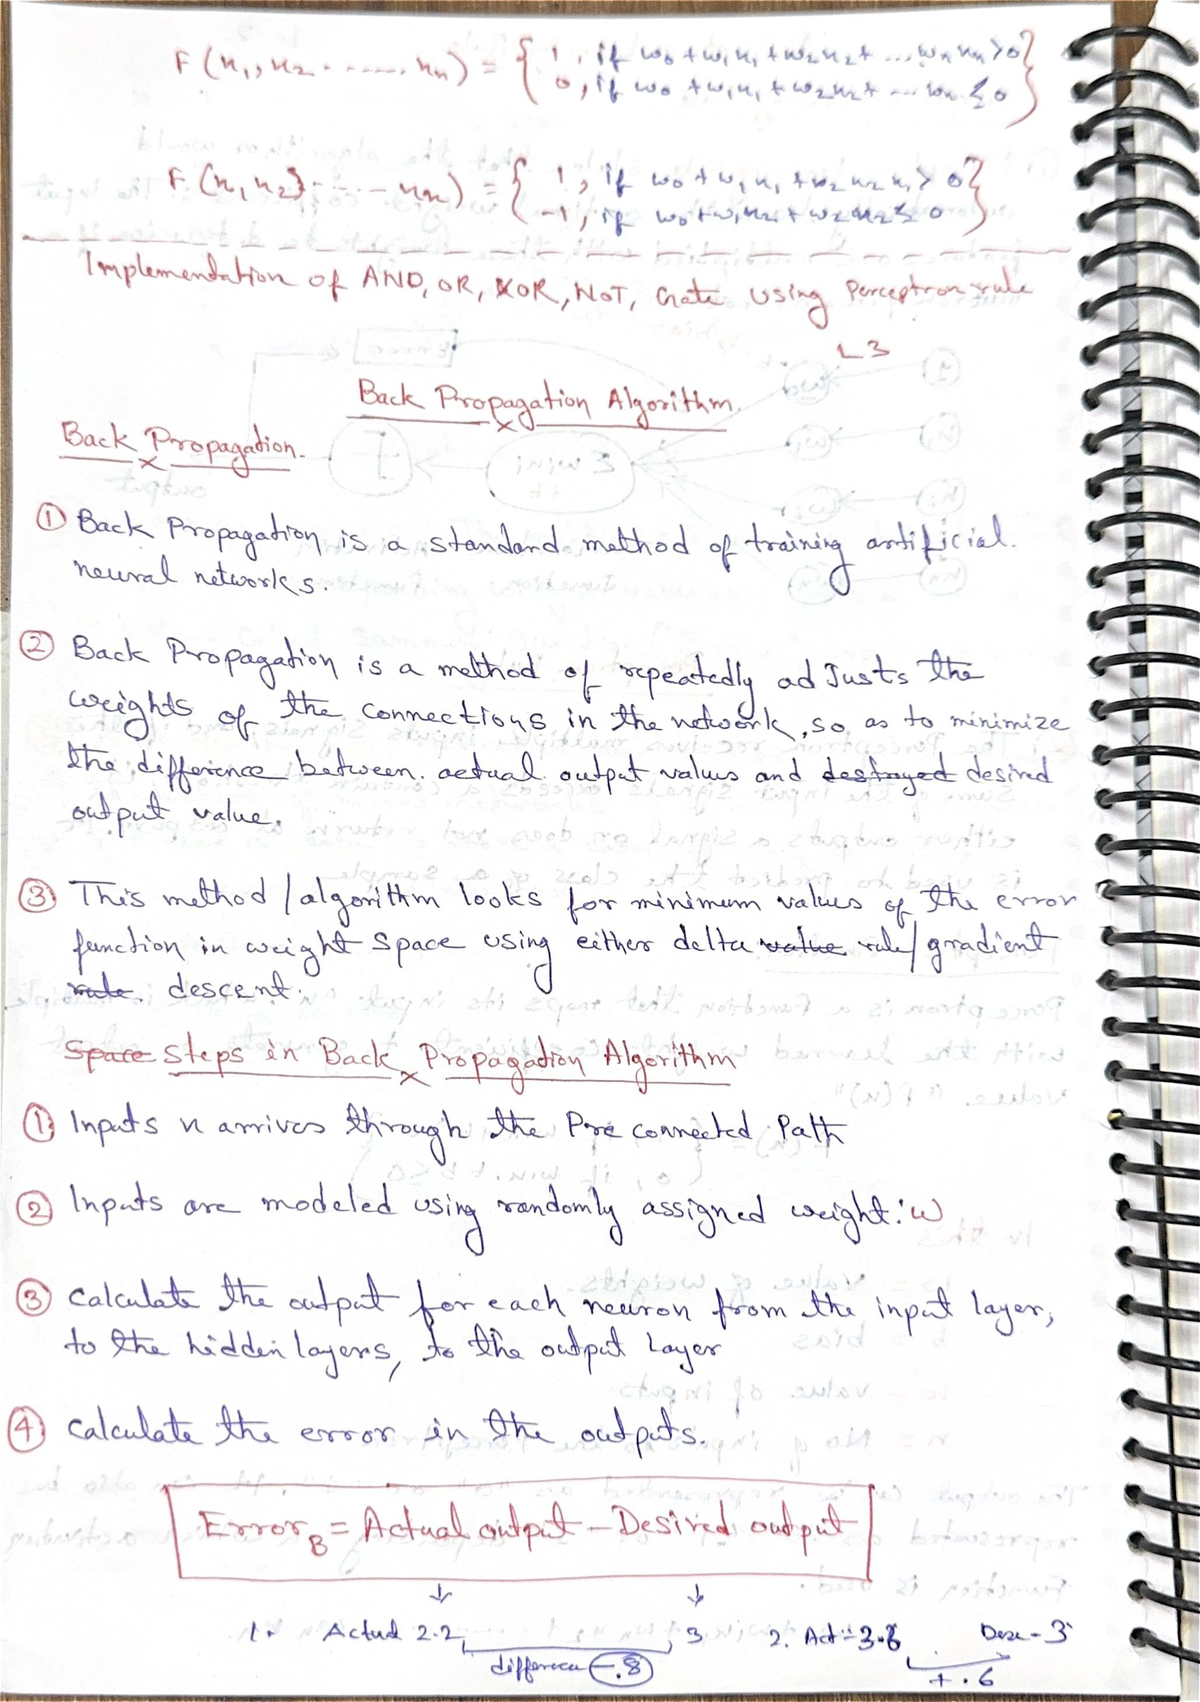 F (x₁, x₂ ........ xₙ) = { 1, if w₀ + w₁x₁ + w₂x₂ + ... wₙxₙ > 0 }
0, if w₀ + w₁x₁ + w₂x₂ + ... wₙ ≤ 0
F (x₁, x₂) ..... xₙ) = { 1, if w₀ + w₁x₁ + w₂x₂ x₁ > 0 }
-1, if w₀ + w₁x₂ + w₂x₂ ≤ 0
Implementation of AND, OR, XOR, NOT, Gate using Perceptron rule
L3
Back Propagation Algorithm.
Back Propagation.
① Back Propagation is a standard method of training artificial.
neural networks.
② Back Propagation is a method of repeatedly ad Justs the
weights of the connections in the network, so as to minimize
the difference between. actual output values and destroyed desired
output value.
③ This method / algorithm looks for minimum values of the error
function in weight space using either delta value rule/ gradient
rule. descent.
Space Steps in Back Propagation Algorithm
① Inputs x arrives through the Pre connected Path
② Inputs are modeled using randomly assigned weight: w
③ Calculate the output for each neuron from the input layer,
to the hidden layers, to the output Layer
④ Calculate the error in the outputs.
Error B = Actual output – Desired output
1. Actual 2.2 3 2. Act = 3.6 Dese - 3
difference -.8 +.6